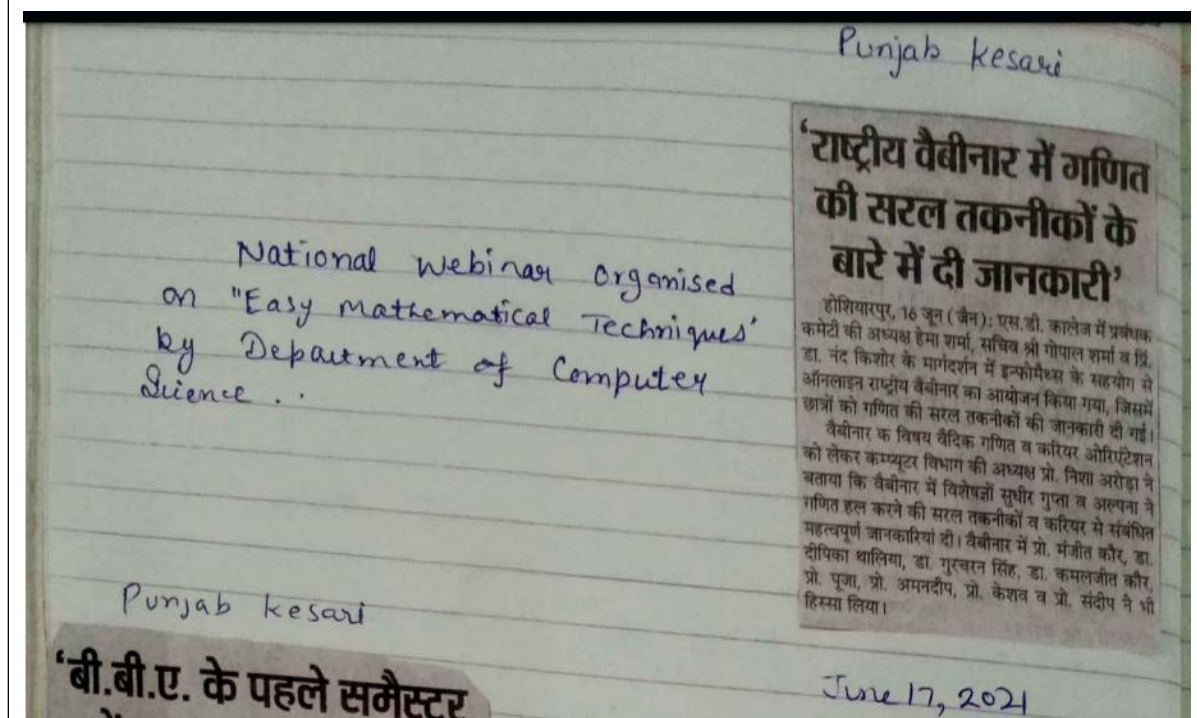 Punjab kesari
'राष्ट्रीय वैबीनार में गणित
की सरल तकनीकों के
बारे में दी जानकारी'
होशियारपुर, 16 जून (जैन): एस.डी. कालेज में प्रबंधक
कमेटी की अध्यक्ष हेमा शर्मा, सचिव श्री गोपाल शर्मा व प्रिं.
डा. नंद किशोर के मार्गदर्शन में इन्फोमैथ्स के सहयोग से
ऑनलाइन राष्ट्रीय वैबीनार का आयोजन किया गया, जिसमें
छात्रों को गणित की सरल तकनीकों की जानकारी दी गई।
वैबीनार क विषय वैदिक गणित व करियर ओरिएंटेशन
को लेकर कम्प्यूटर विभाग की अध्यक्ष प्रो. निशा अरोड़ा ने
बताया कि वैबीनार में विशेषज्ञों सुधीर गुप्ता व अल्पना ने
गणित हल करने की सरल तकनीकों व करियर से संबंधित
महत्वपूर्ण जानकारियां दी। वैबीनार में प्रो. मंजीत कौर, डा.
दीपिका थालिया, डा. गुरचरन सिंह, डा. कमलजीत कौर,
प्रो. पूजा, प्रो. अमनदीप, प्रो. केशव व प्रो. संदीप ने भी
हिस्सा लिया।
National Webinar Organised
on "Easy Mathematical Techniques'
by Department of Computer
Science ..
June 17, 2021
Punjab kesari
'बी.बी.ए. के पहले समैस्टर